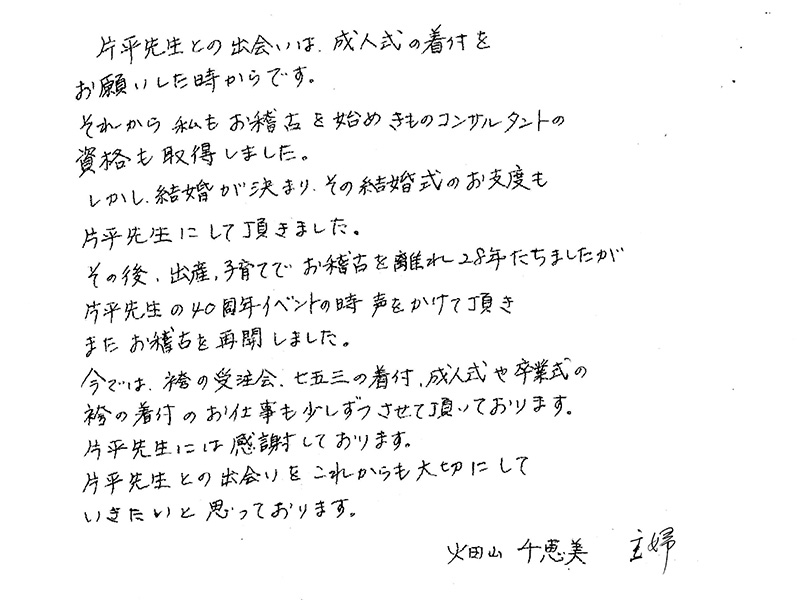 片平先生との出会いは、成人式の着付を
お願いした時からです。
それから 私も お稽古を始め きものコンサルタントの
資格も 取得しました。
しかし、結婚が決まり、その結婚式のお支度も
片平先生にして頂きました。
その後、出産、子育てで お稽古を離れ 28年たちましたが
片平先生の40周年イベントの時 声をかけて頂き
また お稽古を再開しました。
今では、袴の受注会、七五三の着付、成人式や卒業式の
袴の着付のお仕事も少しずつさせて頂いております。
片平先生には感謝しております。
片平先生との出会いを これからも大切にして
いきたいと 思っております。
畑山 千恵美 主婦